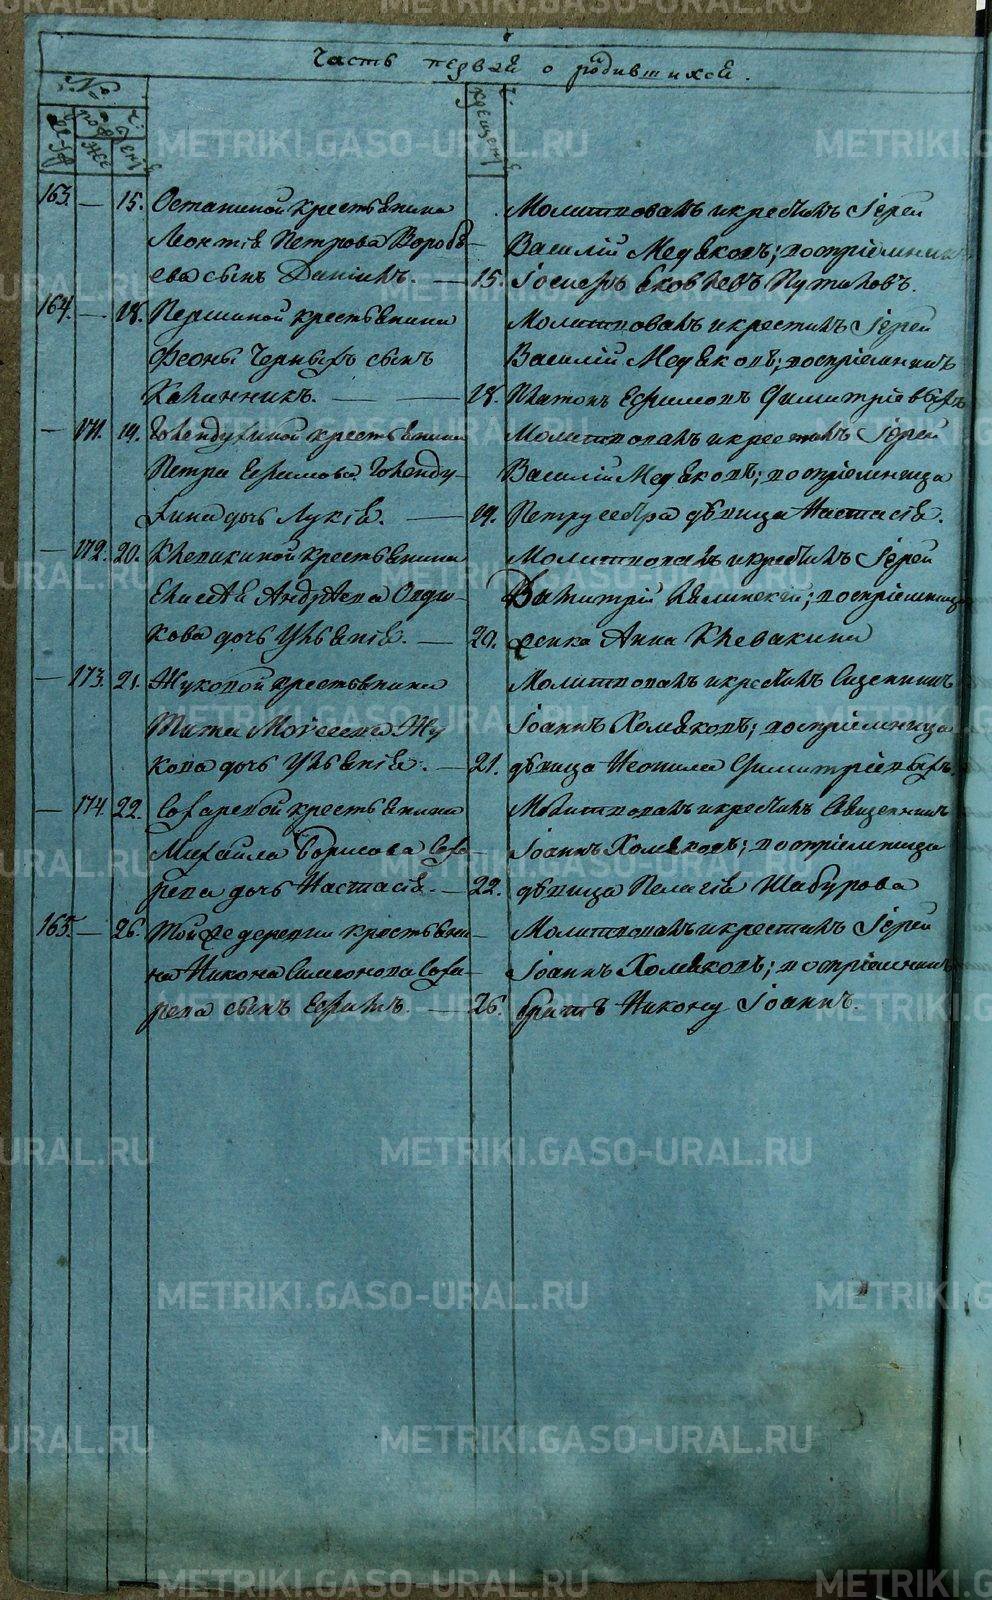 Часть первая о родившихся.
№
163. — 15. Останиной крестьянина
Леонтія Петрова Воробь-
ева сынъ Даніилъ. —
15. Молитвовалъ и крестилъ Іерей
Василій Медяковъ; воспріемникъ
Іосифъ Яковлевъ Путиловъ.
164. — 18. Першиной крестьянина
Феоны Черныхъ сынъ
Каллинникъ. —
18. Молитвовалъ и крестилъ Іерей
Василій Медяковъ; воспріемникъ
Платонъ Ефимовъ Димитріевыхъ
— 171. 19. Голендухиной крестьянина
Петра Ефимова Голенду-
хина дочь Лукія. —
19. Молитвовалъ и крестилъ Іерей
Василій Медяковъ; воспріемница
Петру сестра дѣвица Настасія.
— 172. 20. Клевакиной крестьянина
Елисея Андреева
кова дочь Улянія. —
20. Молитвовалъ и крестилъ Іерей
Димитрій воспріемница
Анна Клевакина
— 173. 21. Жуковой крестьянина
Тита Моисеева Жу
кова дочь Улянія. —
21. Молитвовалъ и крестилъ Священникъ
Іоаннъ Холмяковъ; воспріемница
дѣвица Неонила Димитріевыхъ.
— 174. 22. Сохаревой крестьянина
Михаила Борисова Соха-
рева дочь Настасія. —
22. Молитвовалъ и крестилъ Священникъ
Іоаннъ Холмяковъ; воспріемница
дѣвица Пелагія Шабурова
165. — 26. Той же деревни крестьяни-
на Никона Симеонова Соха-
рева сынъ Ефимъ. —
26. Молитвовалъ и крестилъ Іерей
Іоаннъ Холмяковъ; воспріемникъ
братъ Никону Іоаннъ
METRIKI.GASO-URAL.RU